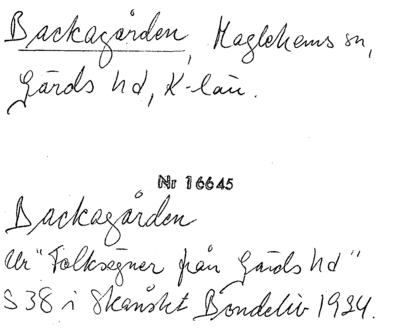 Backagården, Maglehems sn,
Gärds hd, K-län.
Nr 16645
Backagården
Ur "Folksägner från Gärds hd"
S 38 i Skånskt Bondeliv 1924.